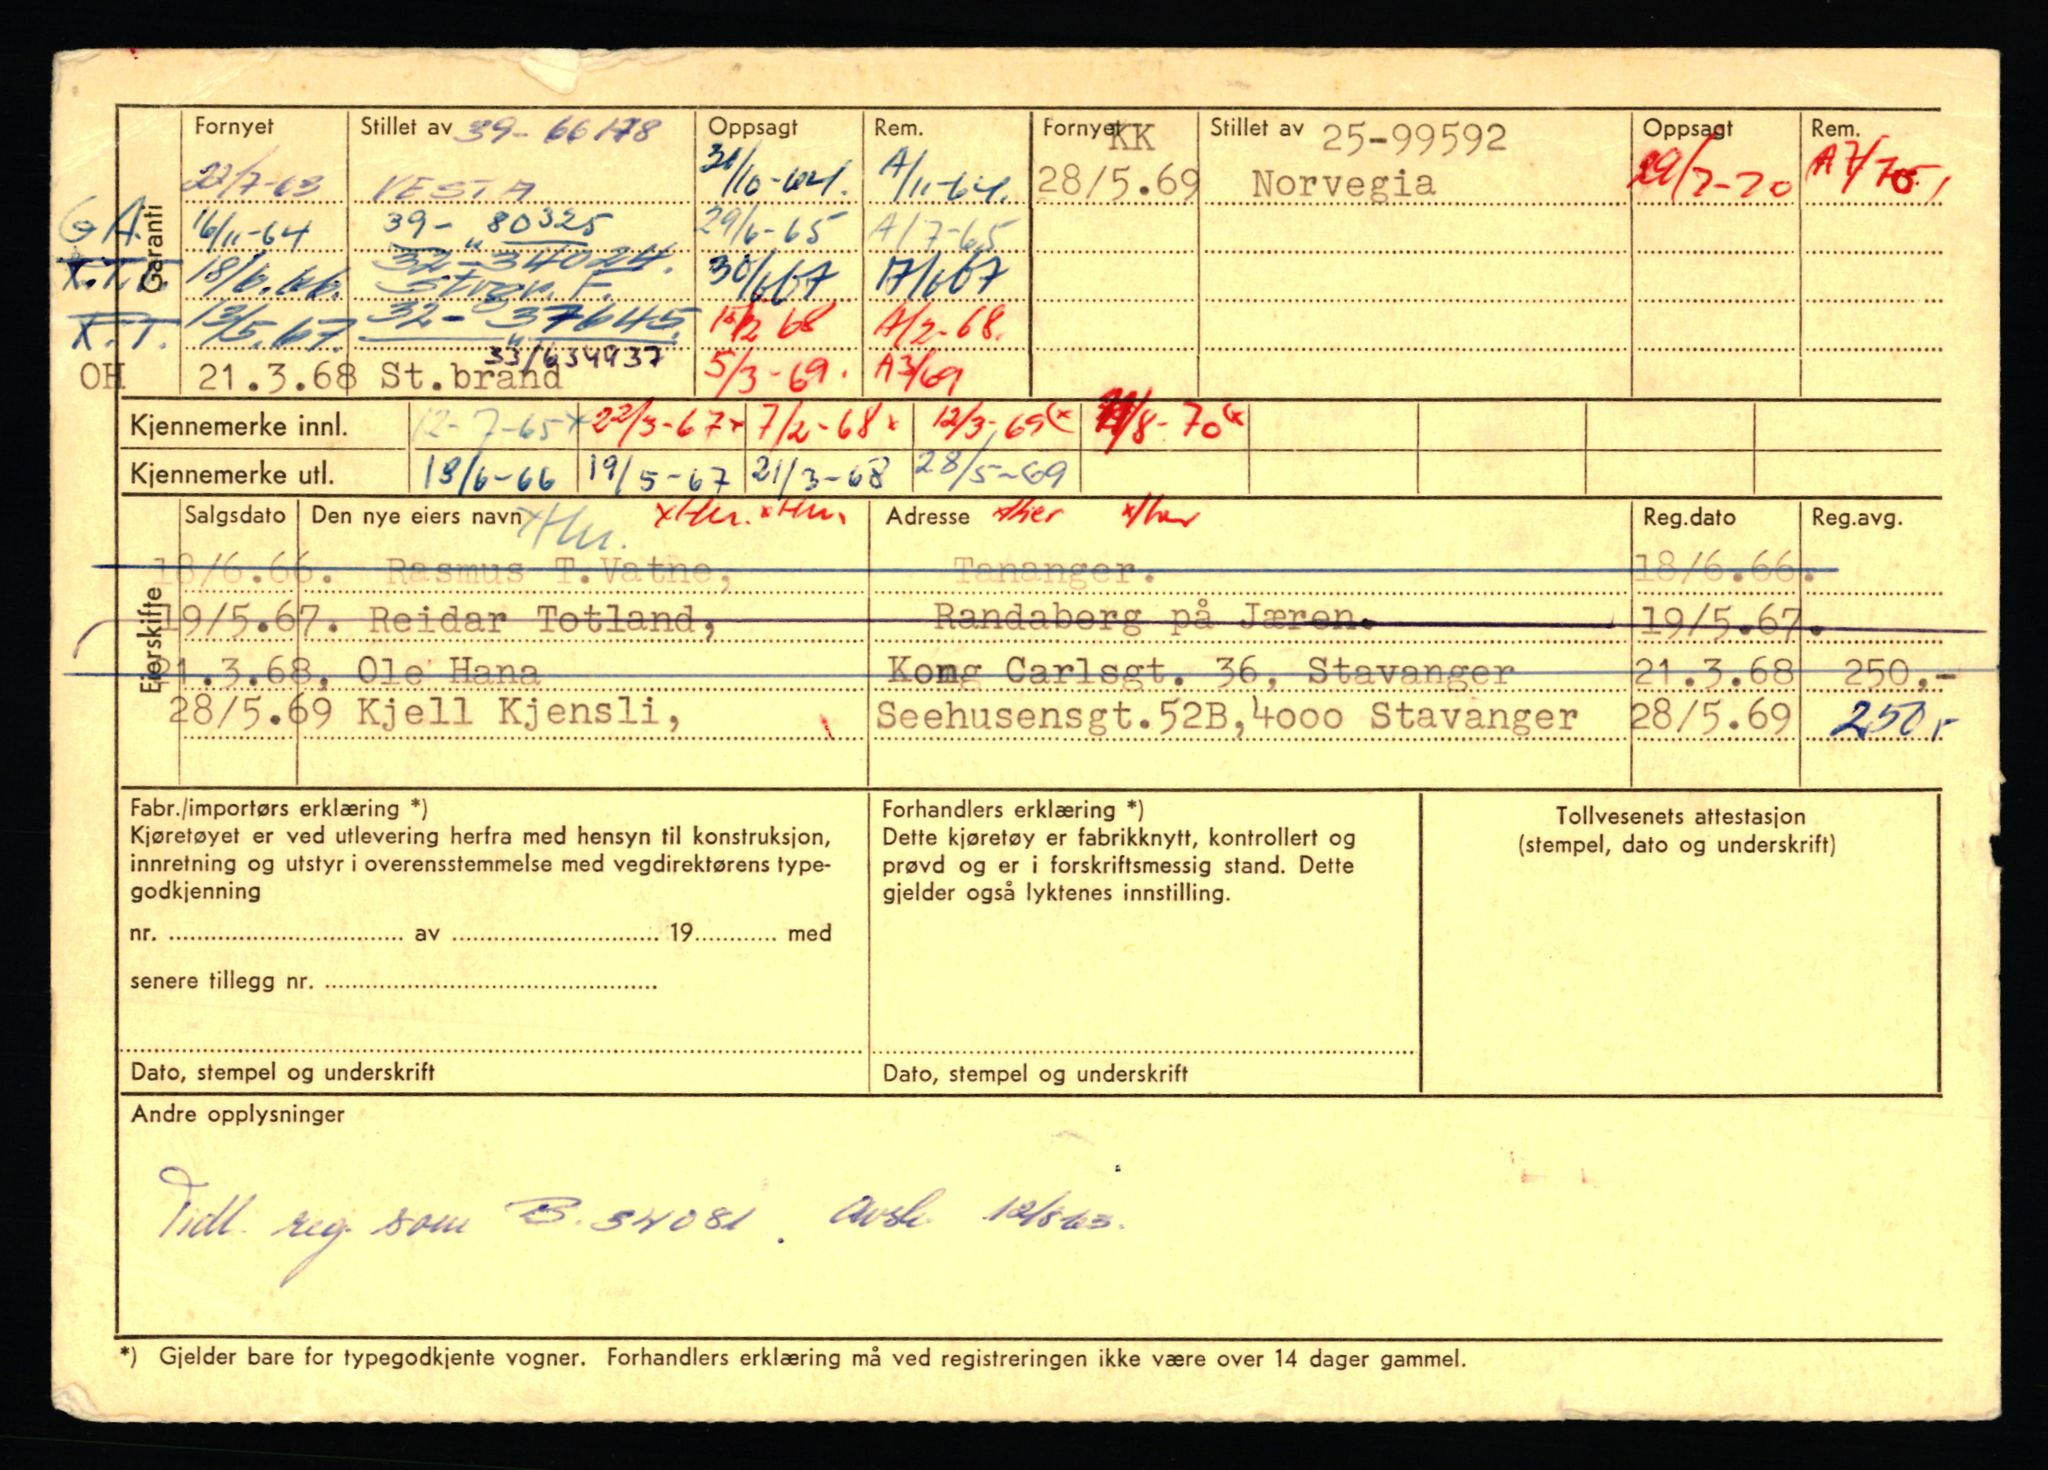 Garanti
Fornyet Stillet av 39-66178 Oppsagt Rem. Fornyet KK Stillet av 25-99592 Oppsagt Rem.
22/7-63 VESTA 31/10-64. A/11-64. 28/5.69 Norvegia 29/7-70 A7/70.
G.A. 16/11-64 39- 80325 29/6-65 A/7-65
18/6.66. 32-34024. Stogn. F. 30/667 17/667
F.T. 13/5.67. 32- 37645. 15/2 68 A/2-68.
33/634937
OH 21.3.68 St.brand 5/3-69. A3/69
Kjennemerke innl. 12-7-65x 22/3-67x 7/2-68x 12/3-69(x /8-70(x
Kjennemerke utl. 18/6-66 19/5-67 21/3-68 28/5-69
Eierskifte
Salgsdato Den nye eiers navn xHer. xHer. xHer. Adresse xHer x/her Reg.dato Reg.avg.
18/6.66. Rasmus T.Vatne, Tananger. 18/6.66.
19/5.67. Reidar Totland, Randaberg på Jæren. 19/5.67.
21.3.68, Ole Hana Kong Carlsgt. 36, Stavanger 21.3.68 250,-
28/5.69 Kjell Kjensli, Seehusensgt.52B,4000 Stavanger 28/5.69 250,-
Fabr./importørs erklæring *)
Kjøretøyet er ved utlevering herfra med hensyn til konstruksjon,
innretning og utstyr i overensstemmelse med vegdirektørens type-
godkjenning
nr. .................... av .................... 19............ med
senere tillegg nr. ....................
Dato, stempel og underskrift
Forhandlers erklæring *)
Dette kjøretøy er fabrikknytt, kontrollert og
prøvd og er i forskriftsmessig stand. Dette
gjelder også lyktenes innstilling.
Dato, stempel og underskrift
Tollvesenets attestasjon
(stempel, dato og underskrift)
Andre opplysninger
Tidl. reg. som B.34081. Avsk. 12/8-63.
*) Gjelder bare for typegodkjente vogner. Forhandlers erklæring må ved registreringen ikke være over 14 dager gammel.